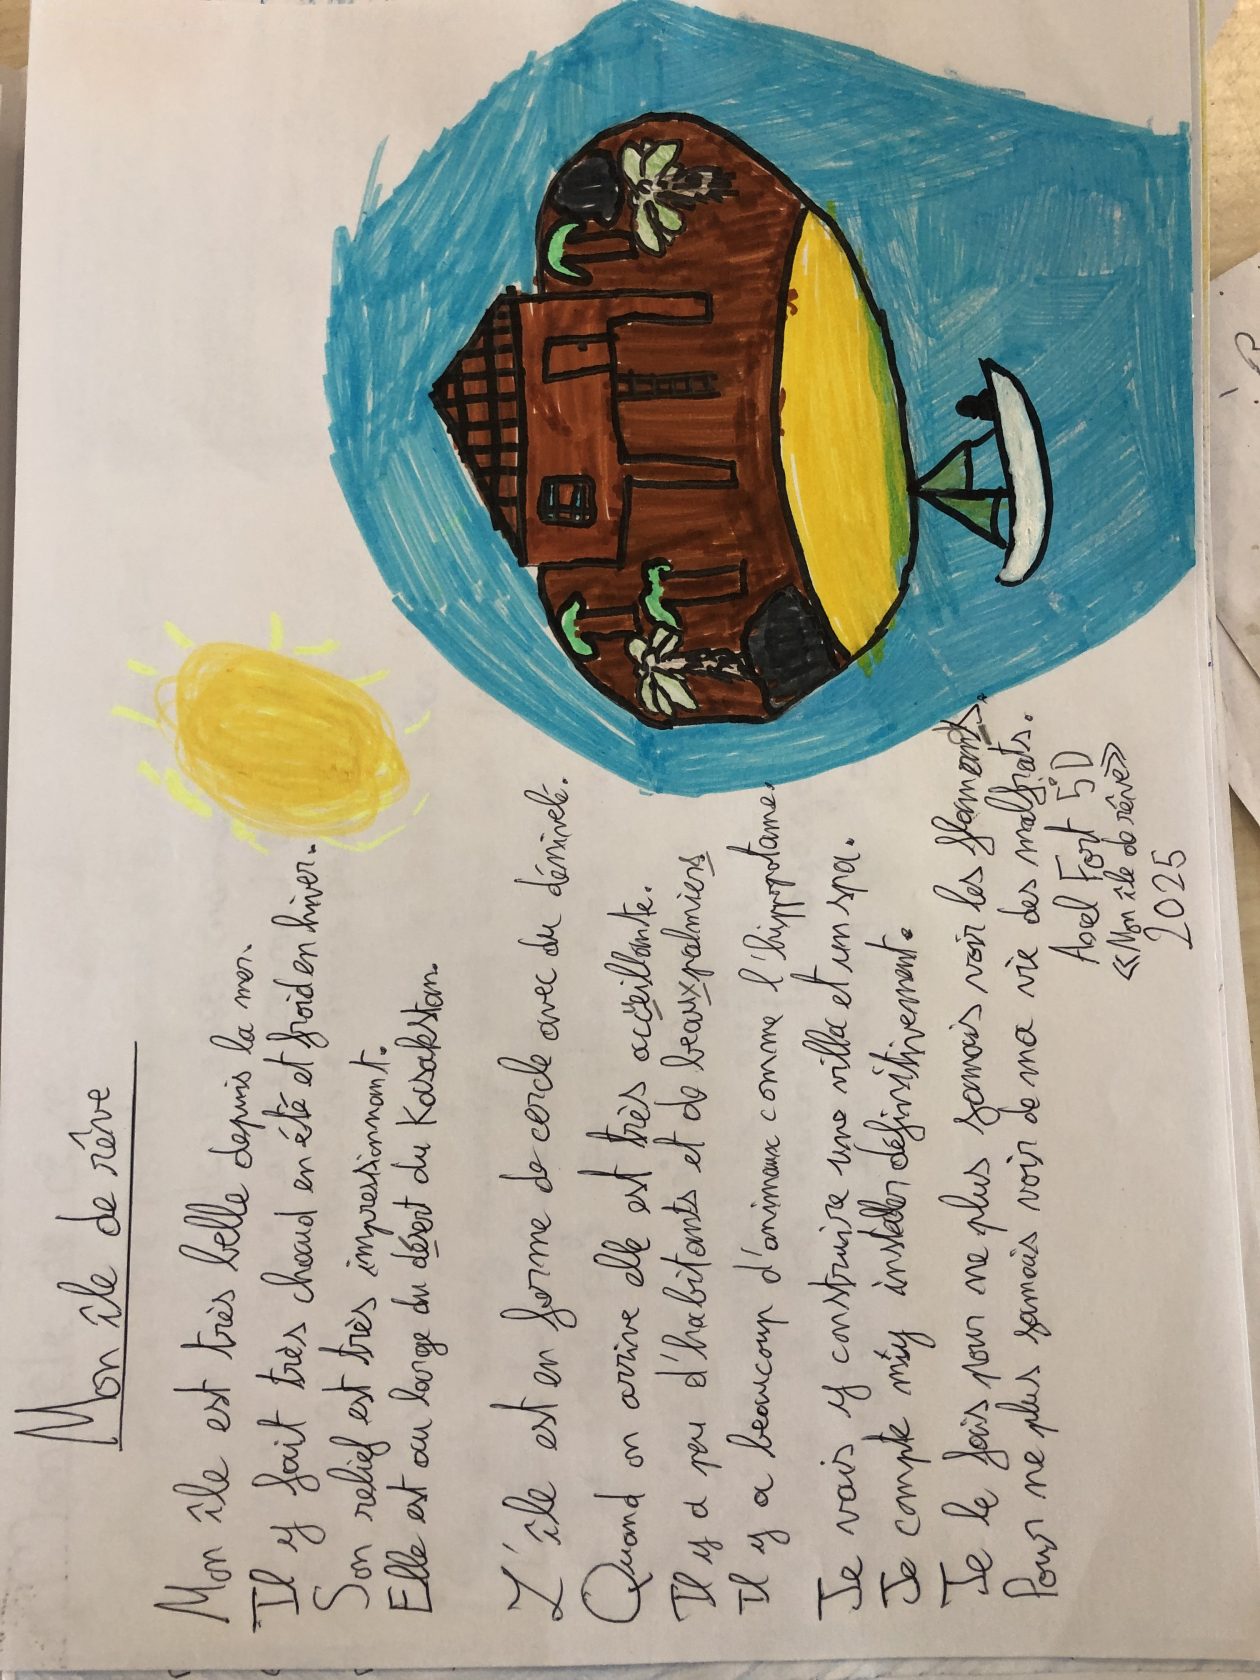 Mon île de rêve
Mon île est très belle depuis la mer.
Il y fait très chaud en été et froid en hiver.
Son relief est très impressionnant.
Elle est au large du désert du Kasakstan.
L'île est en forme de cercle avec du dénivelé.
Quand on arrive elle est très acceillante.
Il y a peu d'habitants et de beaux palmiers
Il y a beaucoup d'animaux comme l'hippopotame.
Je vais y construire une villa et un spa.
Je compte m'y installer définitivement.
Je le fais pour ne plus jamais voir les flamants.
Pour ne plus jamais voir de ma vie des malfrats.
Fort 5D
«Mon île de rêve»
2025